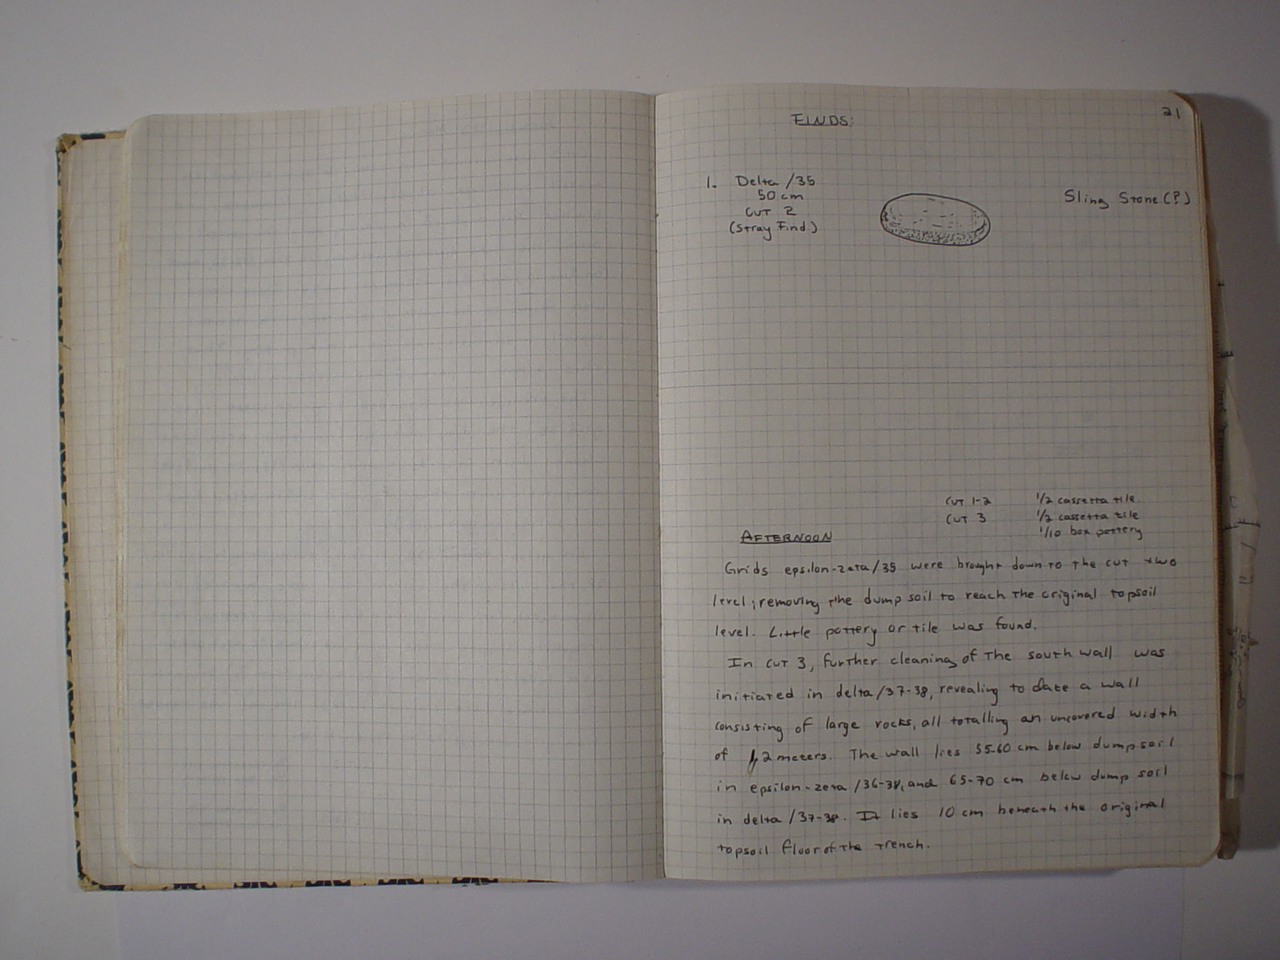 21
FINDS:
1. Delta /35
50 cm
CUT 2
(Stray Find.)
Sling Stone (?)
CUT 1-2 1/2 cassetta tile
CUT 3 1/2 cassetta tile
1/10 box pottery
AFTERNOON
Grids epsilon-zeta/35 were brought down to the cut two
level, removing the dump soil to reach the original topsoil
level. Little pottery or tile was found.
In cut 3, further cleaning of the south wall was
initiated in delta/37-38, revealing to date a wall
consisting of large rocks, all totalling an uncovered width
of 2 meters. The wall lies 55-60 cm below dump soil
in epsilon-zeta/36-38, and 65-70 cm below dump soil
in delta/37-38. It lies 10 cm beneath the original
topsoil floor of the trench.